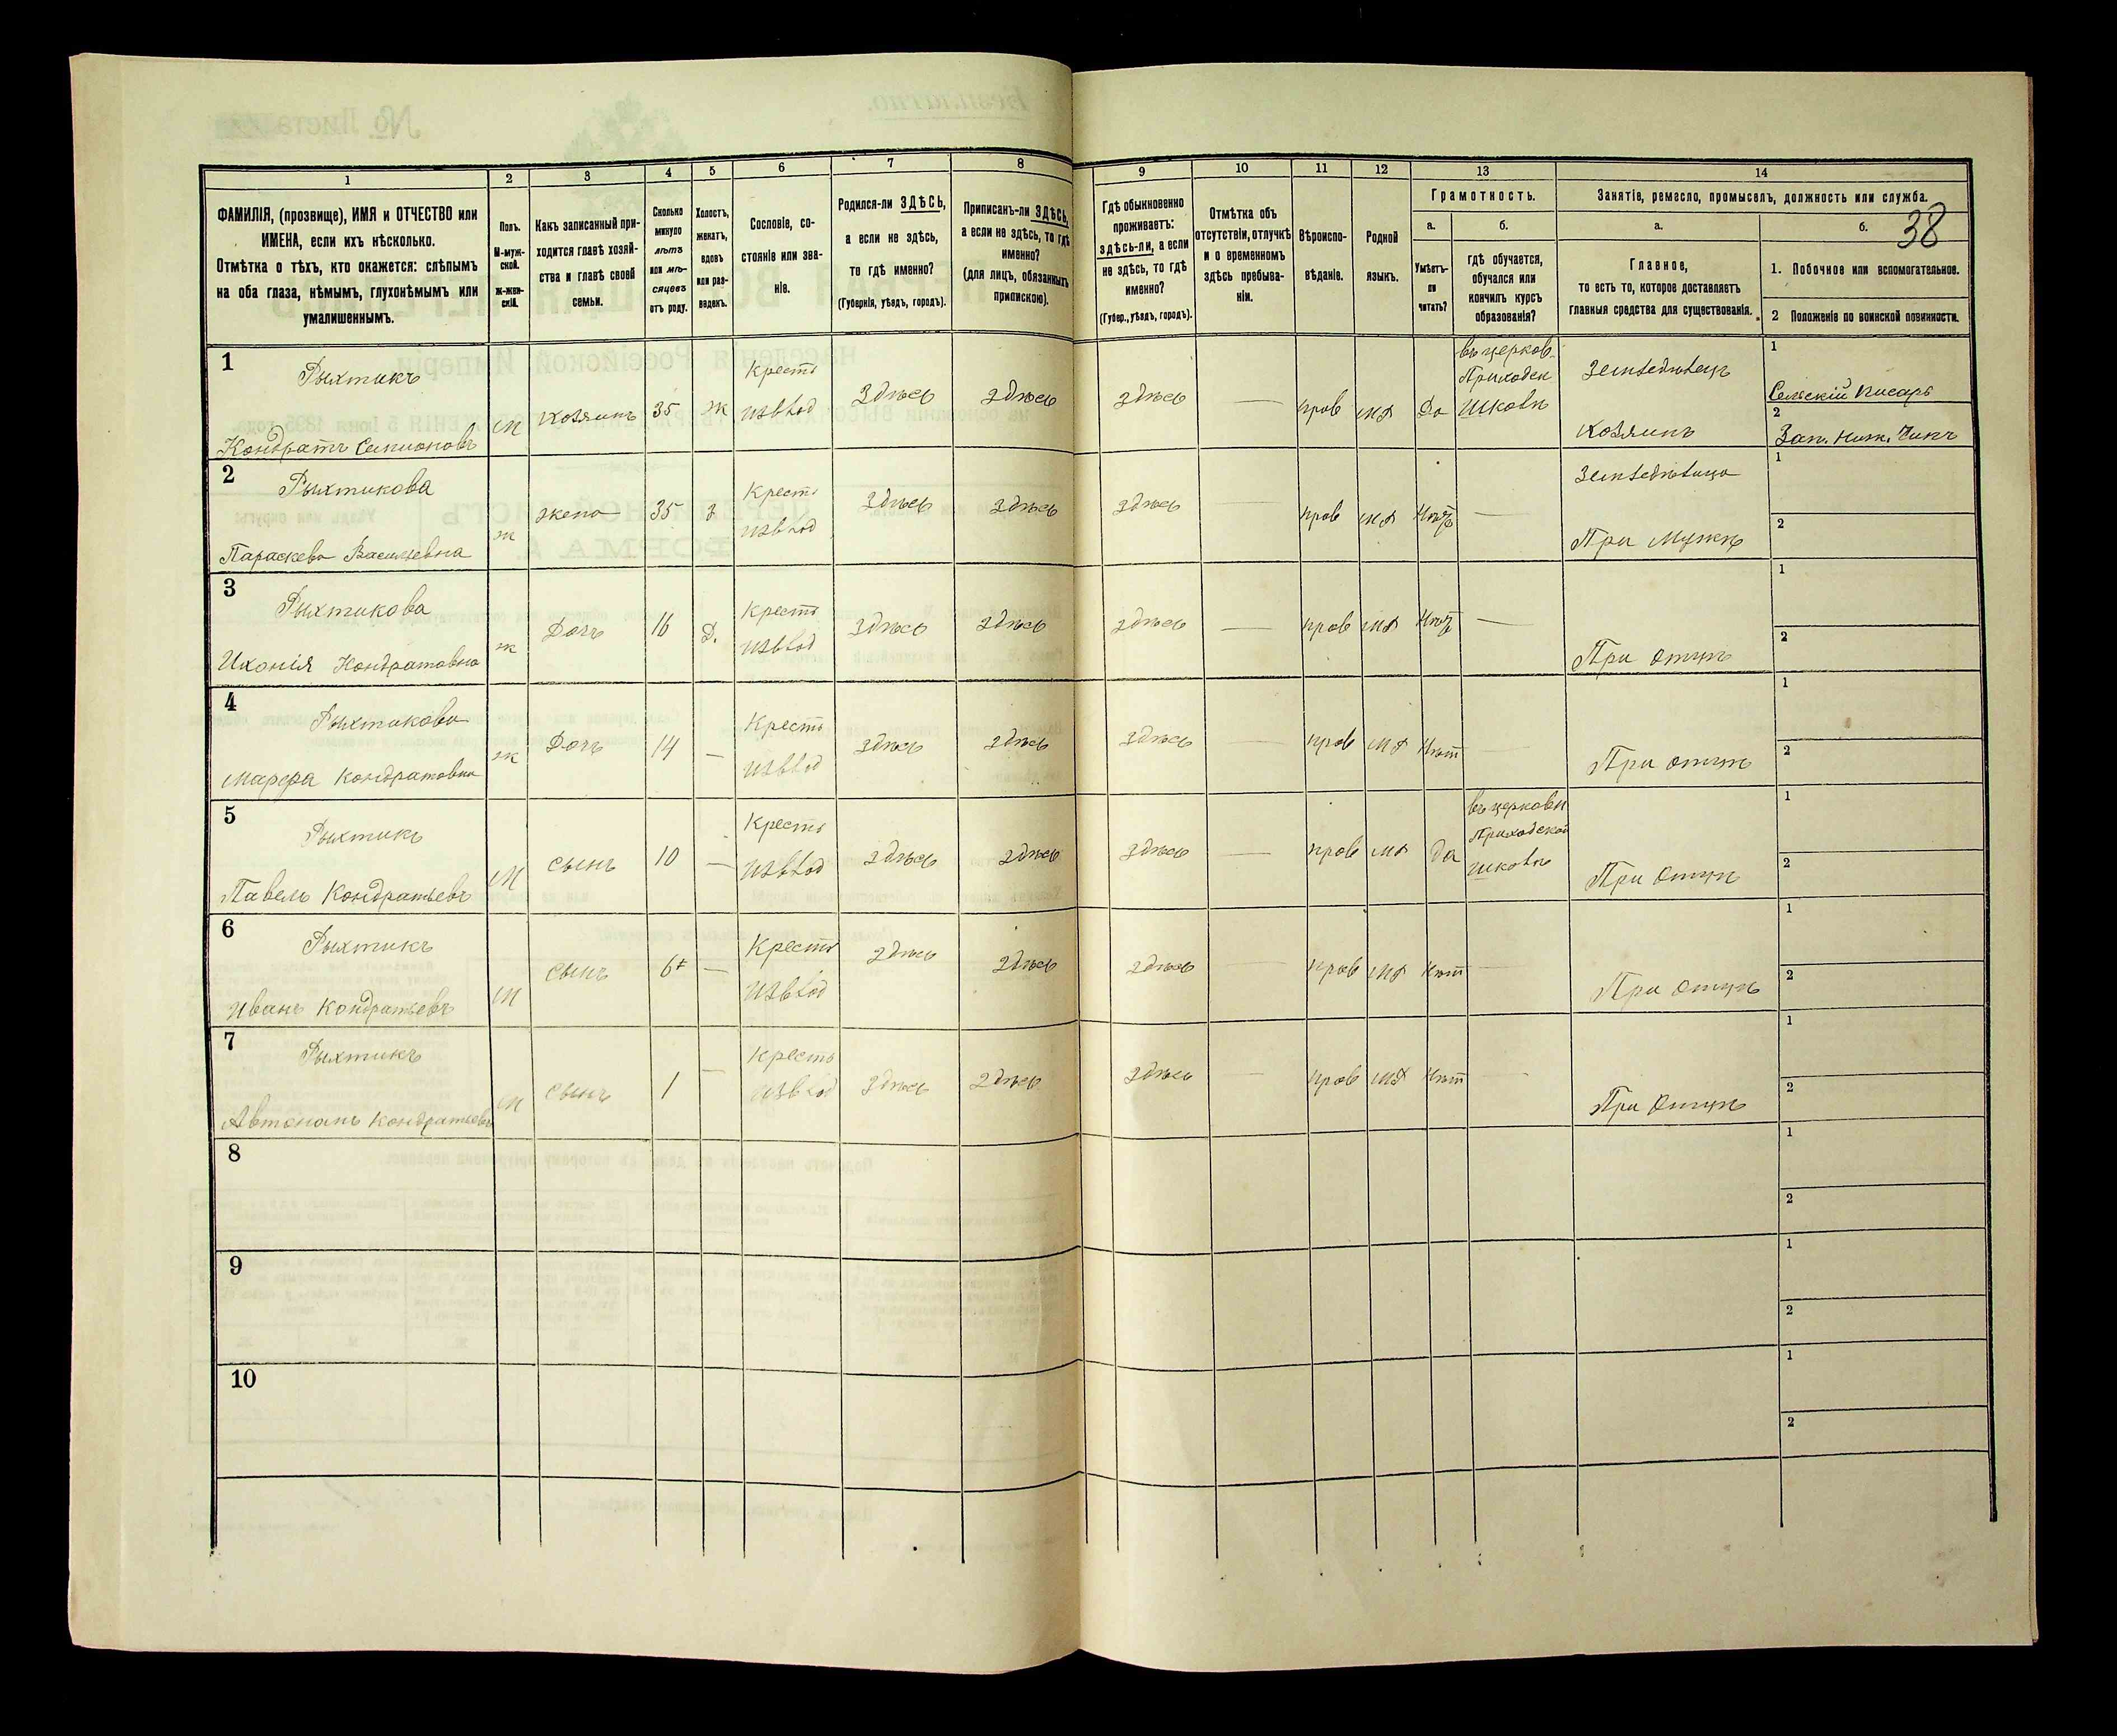 38
1
2
3
4
5
6
7
8
9
10
11
12
13
14
ФАМИЛІЯ, (прозвище), ИМЯ и ОТЧЕСТВО или
ИМЕНА, если ихъ нѣсколько.
Отмѣтка о тѣхъ, кто окажется: слѣпымъ
на оба глаза, нѣмымъ, глухонѣмымъ или
умалишеннымъ.
Полъ.
М-муж-
ской.
Ж-жен-
скій.
Какъ записанный при-
ходится главѣ хозяй-
ства и главѣ своей
семьи.
Сколько
минуло
лѣтъ
или мѣ-
сяцевъ
отъ роду.
Холостъ,
женатъ,
вдовъ
или раз-
веденъ.
Сословіе, со-
стояніе или зва-
ніе.
Родился-ли ЗДѢСЬ,
а если не здѣсь,
то гдѣ именно?
(Губернія, уѣздъ, городъ).
Приписанъ-ли ЗДѢСЬ,
а если не здѣсь, то гдѣ
именно?
(для лицъ, обязанныхъ
припискою).
Гдѣ обыкновенно
проживаетъ:
здѣсь-ли, а если
не здѣсь, то гдѣ
именно?
(Губер., уѣздъ, городъ).
Отмѣтка объ
отсутствіи, отлучкѣ
и о временномъ
здѣсь пребыва-
ніи.
Вѣроиспо-
вѣданіе.
Родной
языкъ.
Грамотность.
а.
Умѣетъ-
ли
читать?
б.
гдѣ обучается,
обучался или
кончилъ курсъ
образованія?
Занятіе, ремесло, промыселъ, должность или служба.
а.
Главное,
то есть то, которое доставляетъ
главныя средства для существованія.
б.
1. Побочное или вспомогательное.
2 Положеніе по воинской повинности.
1
Рыхтикъ
Кондратъ Симионовъ
М
хозяинъ
35
ж
Крестя
изъ влад
Здѣсь
здѣсь
здѣсь
прав
мд
Да
въ церков.
Приходск
школѣ
Земледѣлецъ
хозяинъ
1
Сельскій писарь
2
Зап. ниж. чинъ
2
Рыхтикова
Параскева Васильевна
ж
жена
35
з
Крестя
изъ влад
здѣсь
здѣсь
здѣсь
прав
мд
Нѣтъ
Земледѣлица
При мужѣ
1
2
3
Рыхтикова
Ихонія Кондратовна
ж
Дочь
16
Д.
Крестя
изъ влад
здѣсь
здѣсь
здѣсь
прав
мд
Нѣтъ
При отцѣ
1
2
4
Рыхтикова
Марфа Кондратовна
ж
Дочь
14
Крестя
изъ влад
здѣсь
здѣсь
здѣсь
прав
мд
Нѣт
При отцѣ
1
2
5
Рыхтикъ
Павелъ Кондратьевъ
М
сынъ
10
Крестя
изъ влад
здѣсь
здѣсь
здѣсь
прав
мд
да
въ церковн
Приходской
школѣ
При отцѣ
1
2
6
Рыхтикъ
Иванъ Кондратьевъ
М
сынъ
6
Крестя
изъ влад
здѣсь
здѣсь
здѣсь
прав
мд
Нѣт
При отцѣ
1
2
7
Рыхтикъ
Автономъ Кондратьевъ
М
сынъ
1
Крестя
изъ влад
здѣсь
здѣсь
здѣсь
прав
мд
Нѣт
При отцѣ
1
2
8
1
2
9
1
2
10
1
2